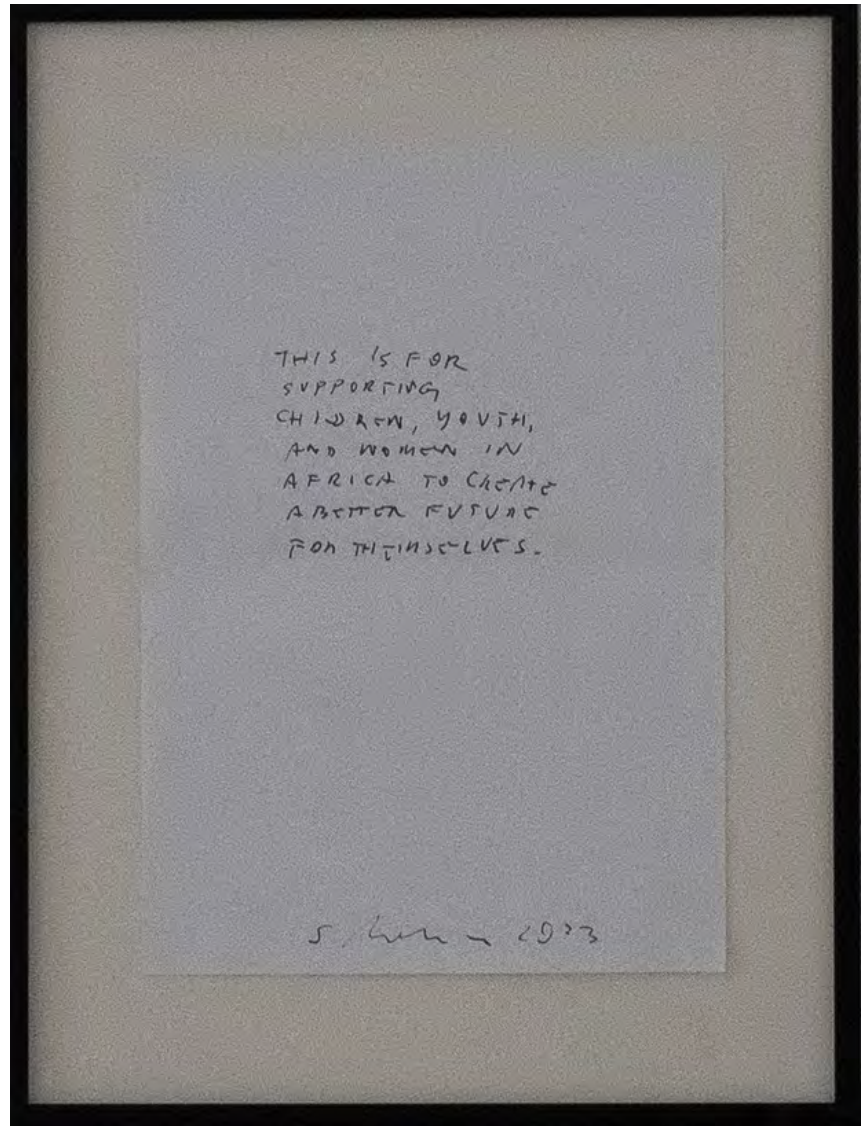 THIS IS FOR
SUPPORTING
CHILDREN, YOUTH,
AND WOMEN IN
AFRICA TO CREATE
A BETTER FUTURE
FOR THEMSELVES.
S. 2023